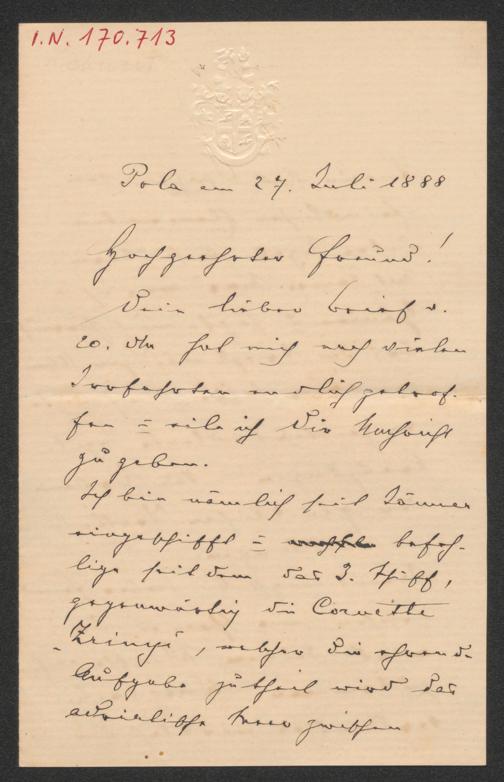 I.N. 170.713
Pola am 27. Juli 1888
Hochgeehrter Freund!
Dein lieber Brief v.
20. dM hat mich nach vielen
Irrfahrten endlich getrof-
fen = eile ich Dir Nachricht
zu geben.
Ich bin nämlich seit Jänner
eingeschifft = befeh-
lige seitdem das 3. Schiff,
gegenwärtig die Corvette
Zrinyi, welcher die
Aufgabe zutheil wird das
adriatische Meer zwischen